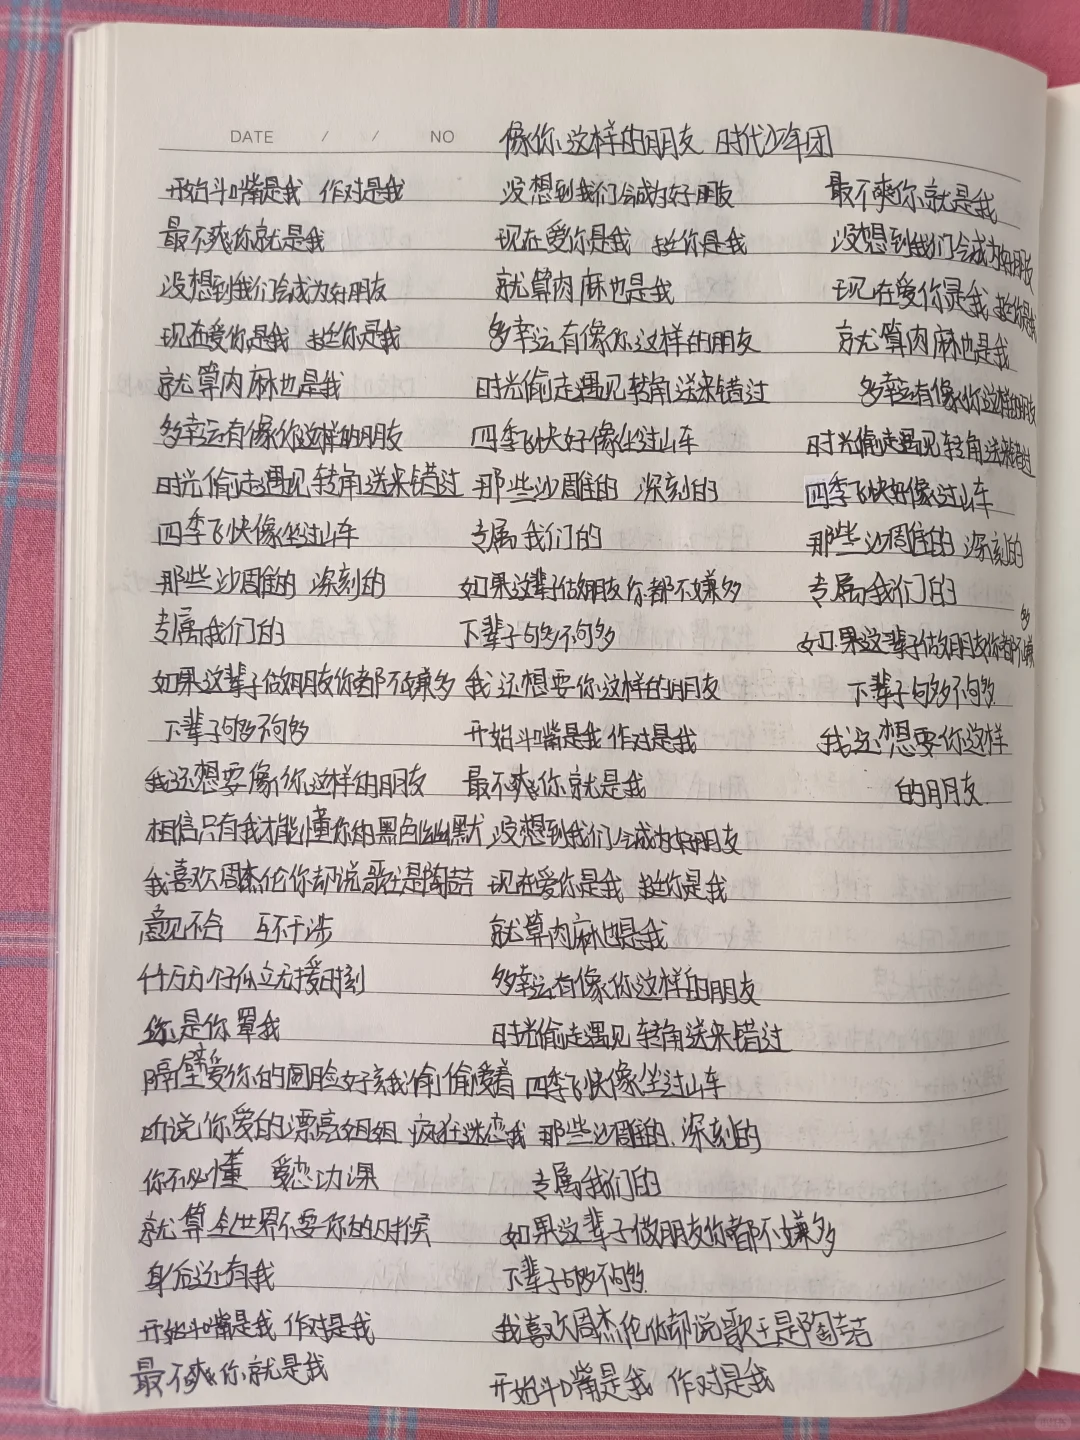 DATE / / NO
像你这样的朋友 时代少年团
开始斗嘴是我 作对是我
最不爽你就是我
没想到我们会成为好朋友
现在爱你是我 挺你是我
就算肉麻也是我
多幸运有像你这样的朋友
时光偷走遇见转角送来错过
四季飞快像坐过山车
那些沙雕的 深刻的
专属我们的
如果这辈子做朋友你都不嫌多
下辈子够不够多
我还想要像你这样的朋友
相信只有我才能懂你的黑色幽默
我喜欢周杰伦你却说歌王是陶喆
意见不合 互不干涉
千万万个孤立无援时刻
你是你罩我
隔壁爱你的圆脸女孩我偷偷暖着
听说你爱的漂亮姐姐 疯狂迷恋我
你不必懂 爱恋功课
就算全世界不要你的时候
身后还有我
开始斗嘴是我 作对是我
最不爽你就是我
没想到我们会成为好朋友
现在爱你是我 挺你是我
就算肉麻也是我
多幸运有像你这样的朋友
时光偷走遇见转角送来错过
四季飞快好像坐过山车
那些沙雕的 深刻的
专属我们的
如果这辈子做朋友你都不嫌多
下辈子够不够多
我还想要你这样的朋友
开始斗嘴是我 作对是我
最不爽你就是我
没想到我们会成为好朋友
现在爱你是我 挺你是我
就算肉麻也是我
多幸运有像你这样的朋友
时光偷走遇见转角送来错过
四季飞快像坐过山车
那些沙雕的 深刻的
专属我们的
如果这辈子做朋友你都不嫌多
下辈子够不够多
我喜欢周杰伦你却说歌王是陶喆
开始斗嘴是我 作对是我
最不爽你就是我
没想到我们会成为好朋友
现在爱你是我 挺你是我
就算肉麻也是我
多幸运有像你这样的朋友
时光偷走遇见转角送来错过
四季飞快好像过山车
那些沙雕的 深刻的
专属我们的
如果这辈子做朋友你都不嫌多
下辈子够多不够多
我还想要你这样
的朋友